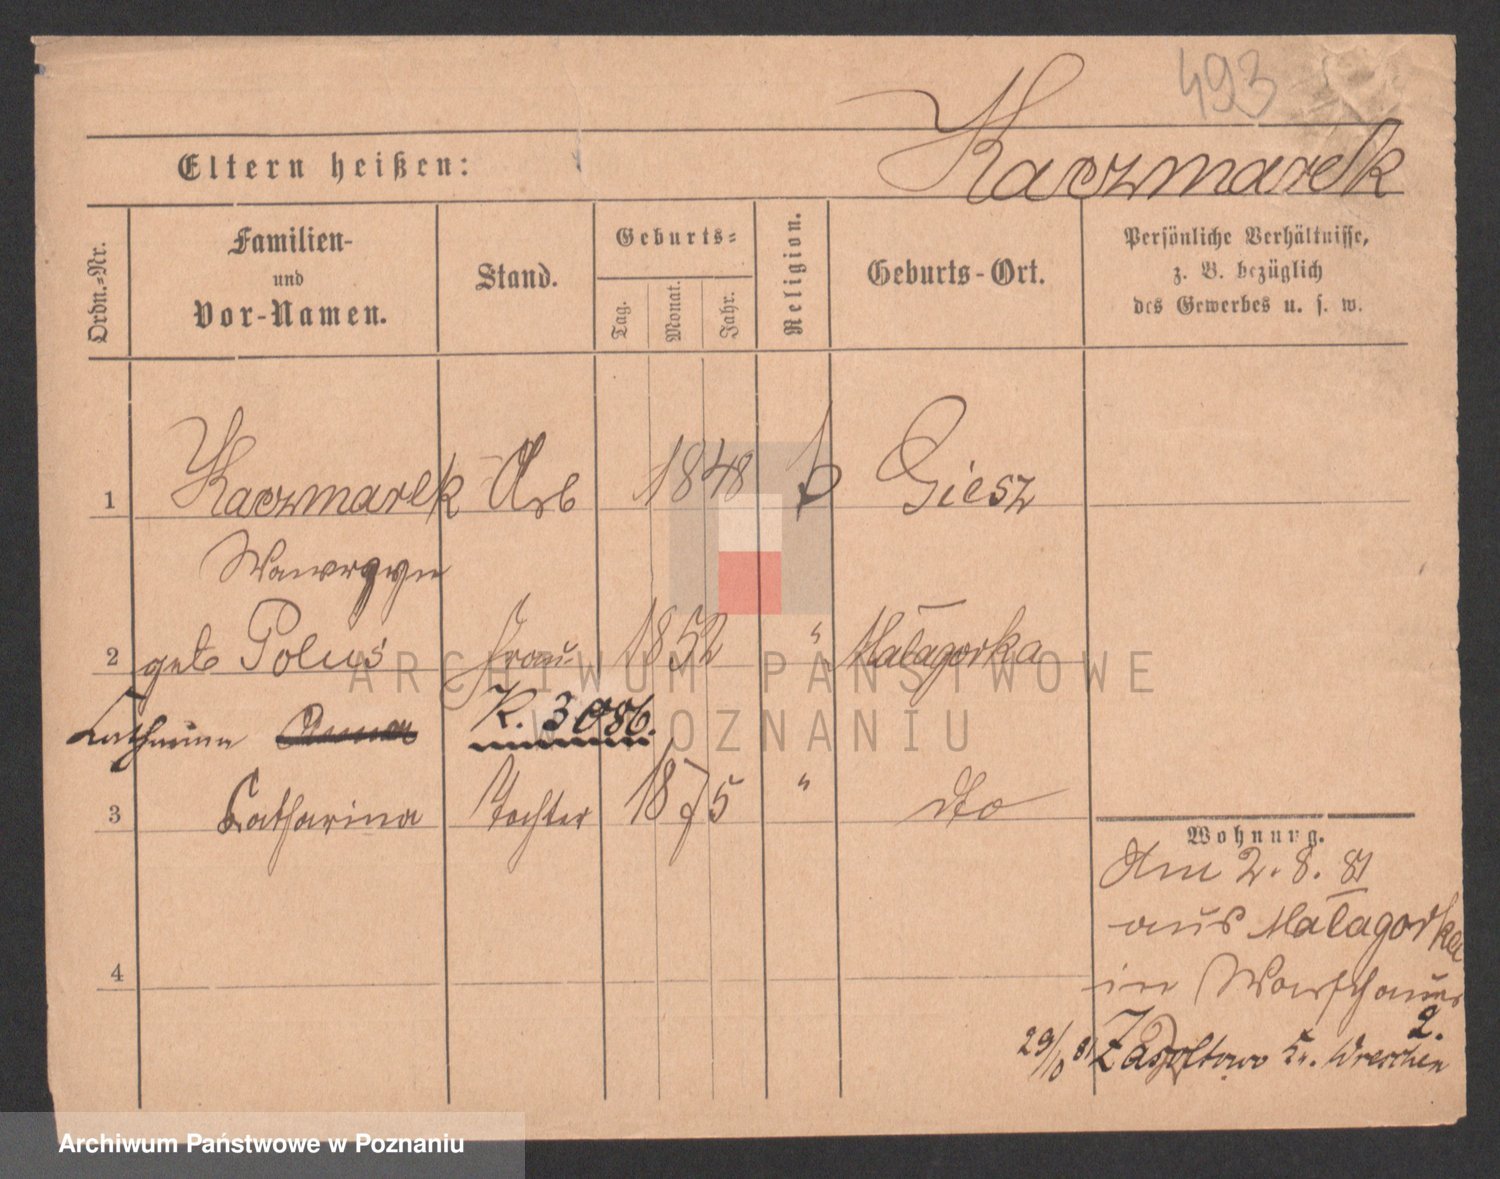 493
Kaczmarek
Eltern heißen:
Ordn.-Nr.
Familien-
und
Vor-Namen.
Stand.
Geburts-
Tag.
Monat.
Jahr.
Religion.
Geburts-Ort.
Persönliche Verhältnisse,
z. B. bezüglich
des Gewerbes u. s. w.
1 Kaczmarek Arb 1848 Giesz
Wawrzyn
2 geb Polus Frau 1852 " Małagorka
Catharina K. 3086.
3 Catharina Tochter 1875 " dto
Wohnung.
Am 2. 8. 81
aus Małagorka
in Warschauer
2.
29/10 81 Kr. Wreschen
4
ARCHIWUM PAŃSTWOWE
W POZNANIU
Archiwum Państwowe w Poznaniu